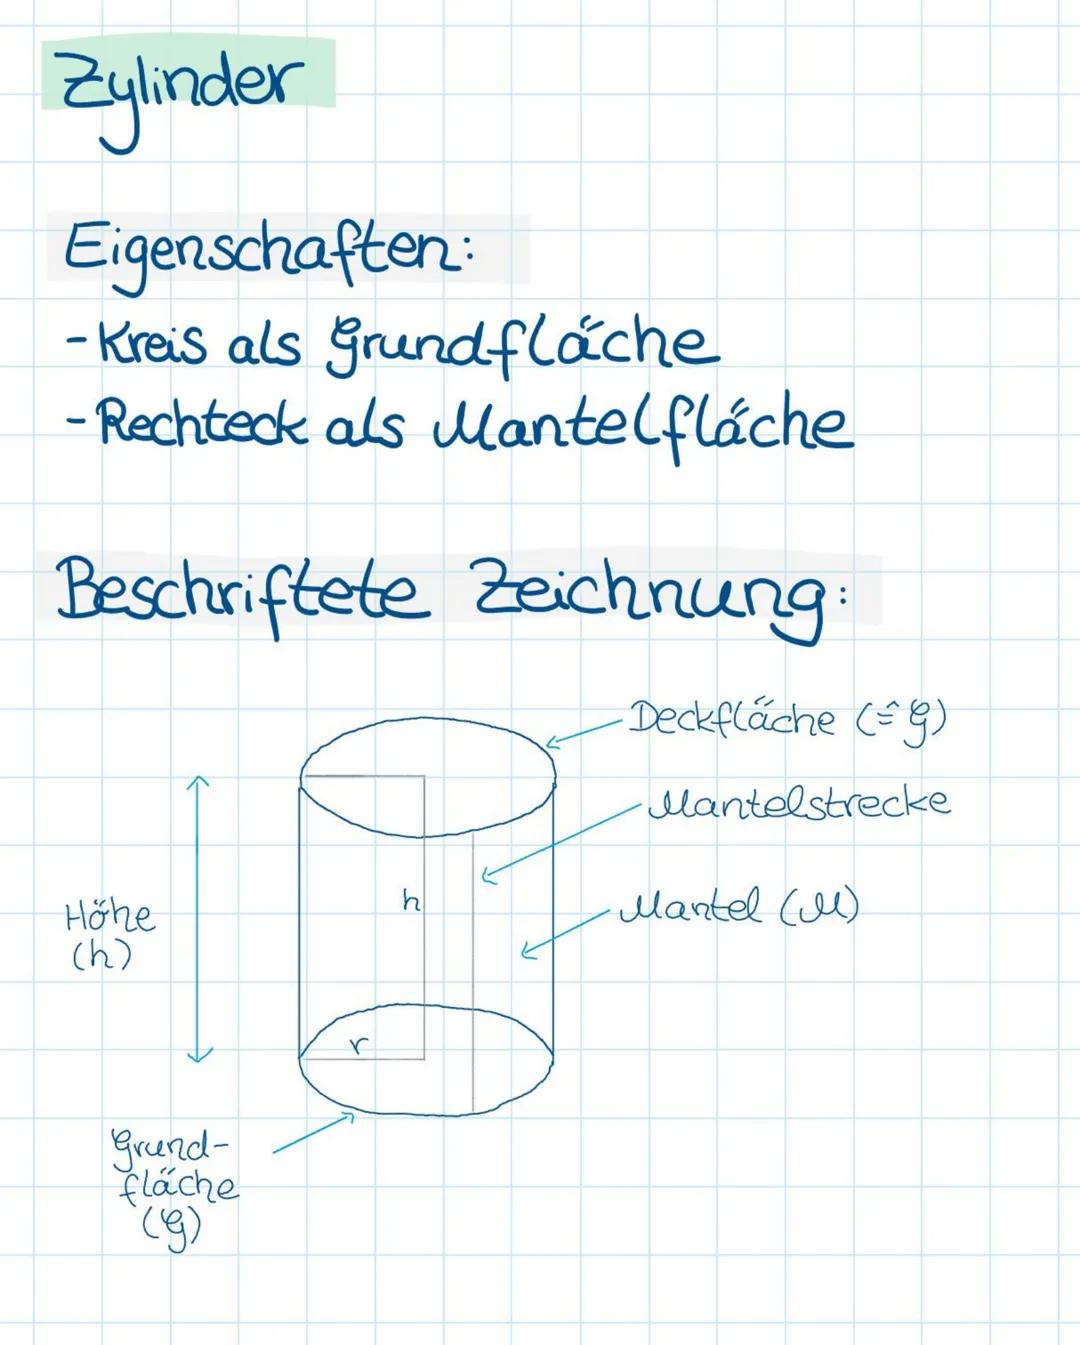 Zylinder
Eigenschaften:
- Kreis als Grundfläche
- Rechteck als Mantelfläche
Beschriftete Zeichnung:
Deckfläche (≙ G)
Mantelstrecke
h
Mantel (M)
Höhe
(h)
r
Grund-
fläche
(G)